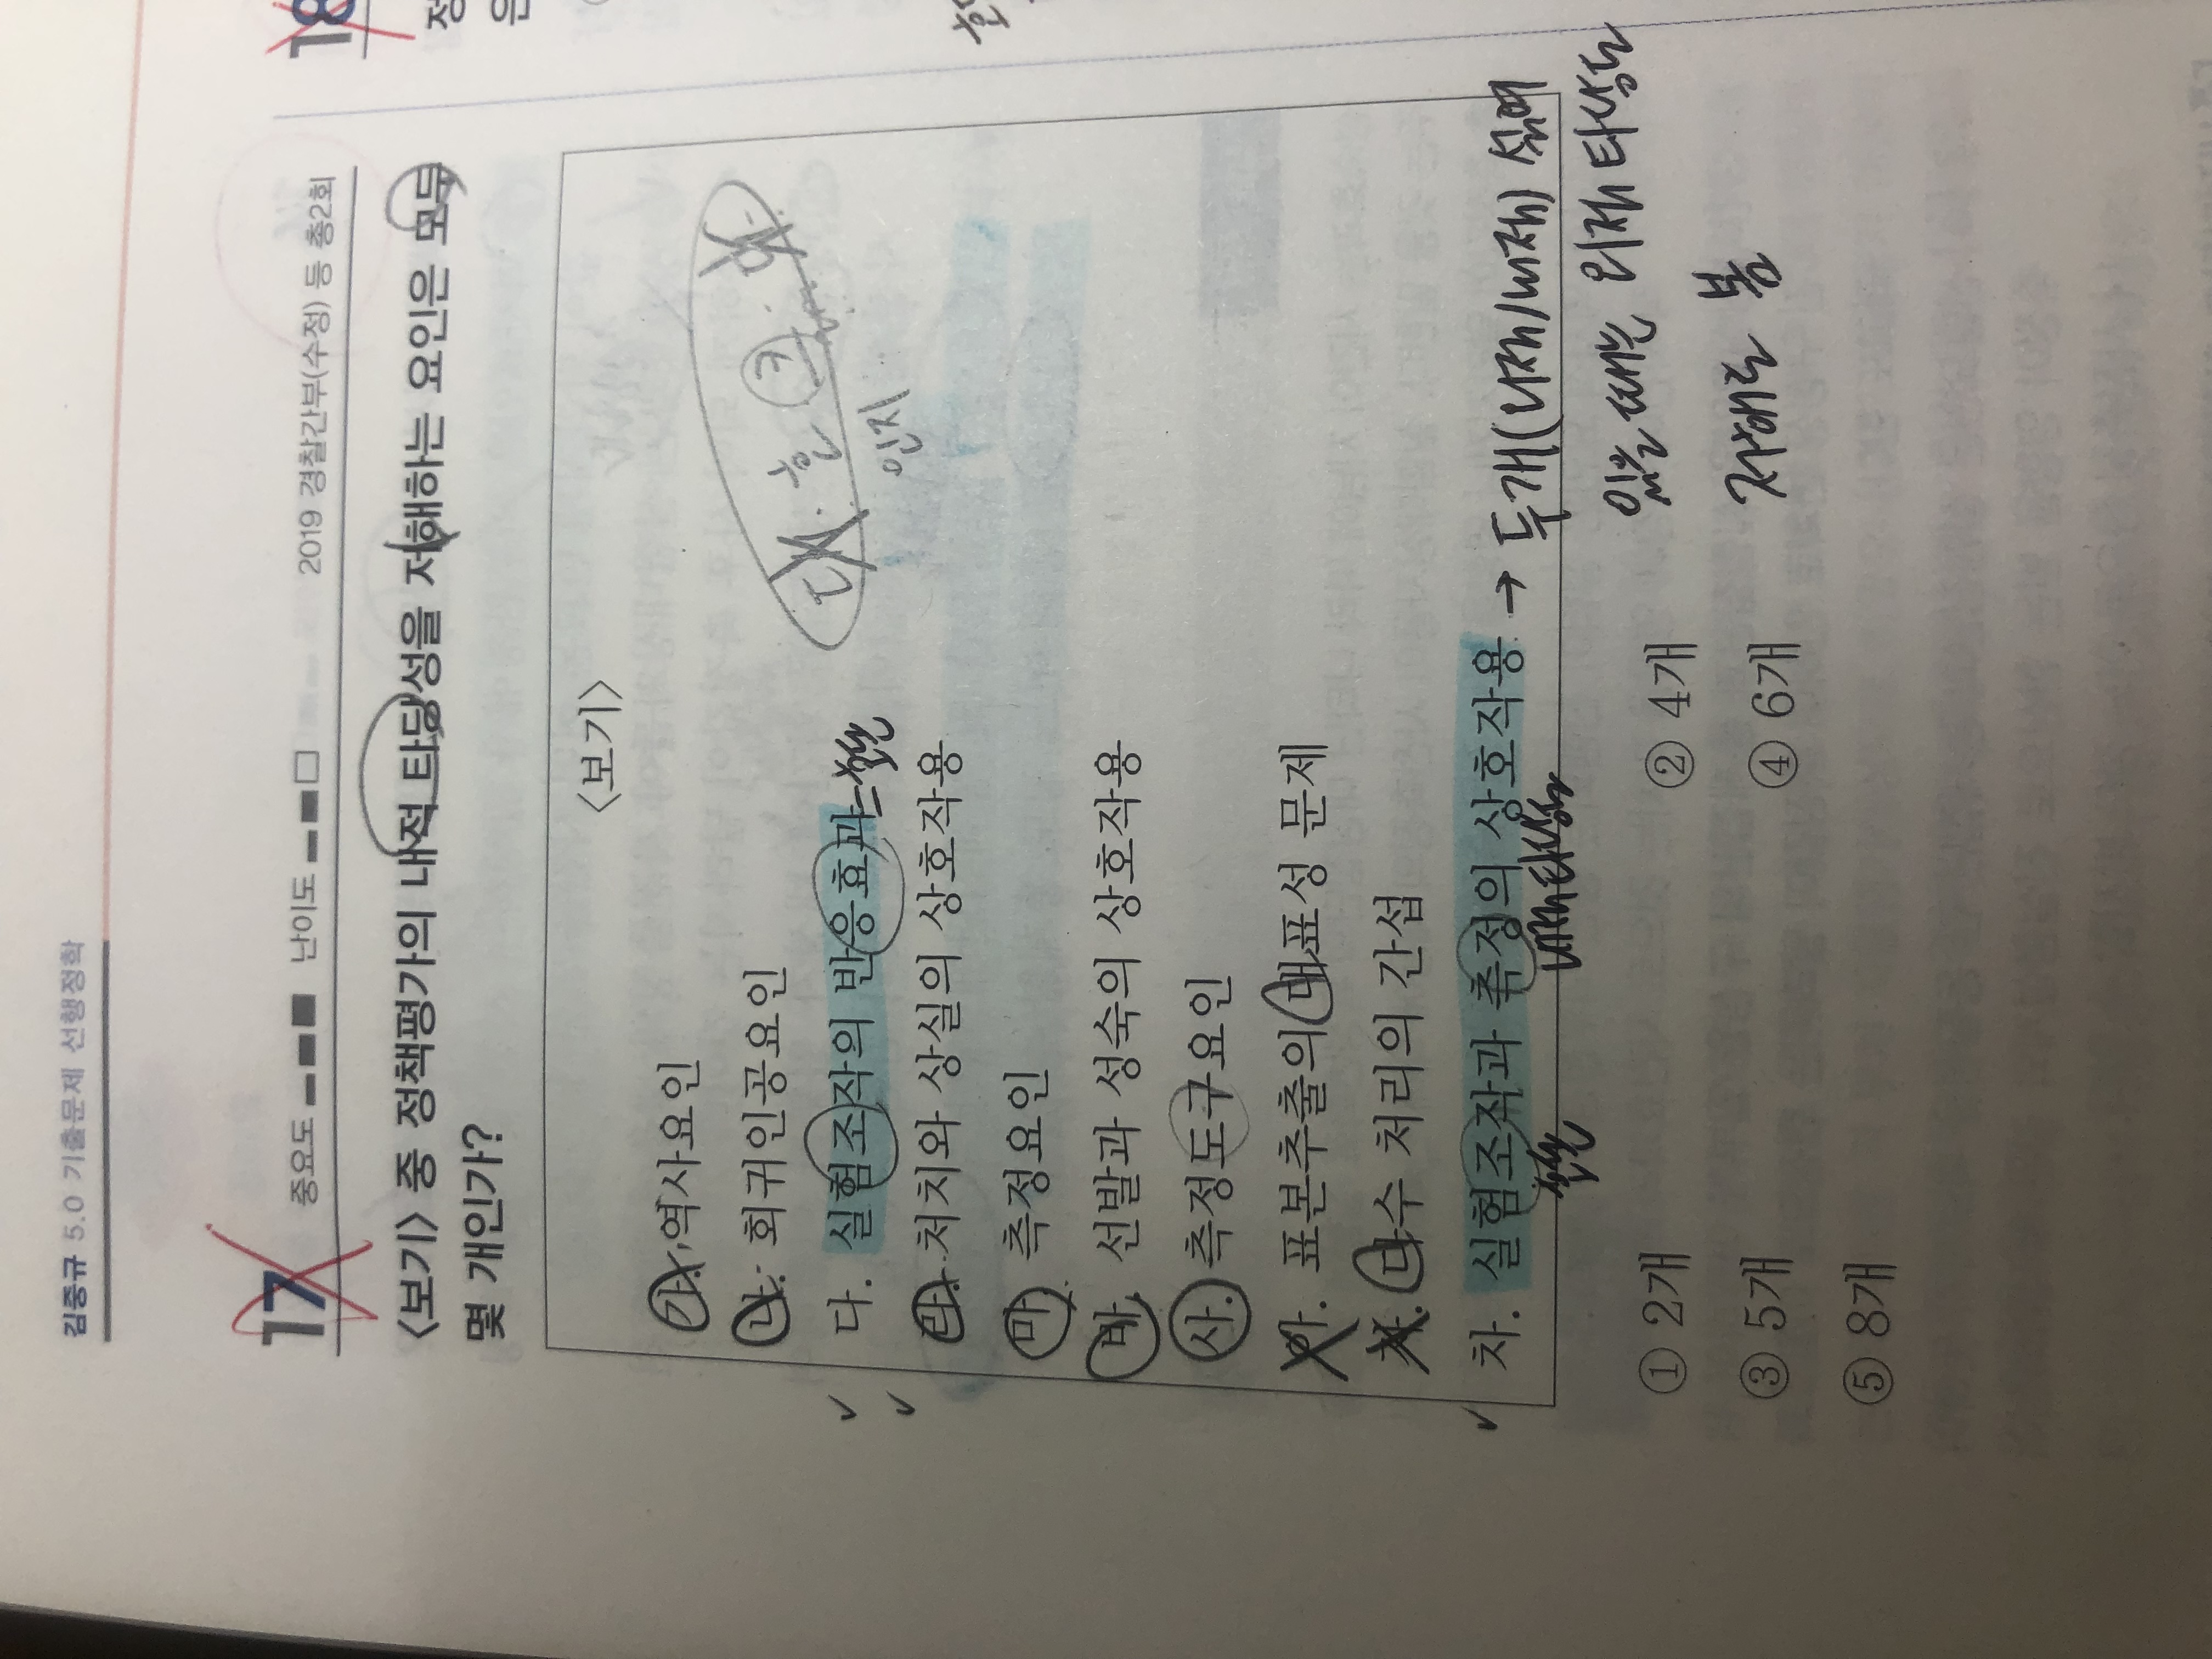 김중규 5.0 기출문제 선행정학
17 중요도 난이도 2019 경찰간부(수정) 등 총2회
<보기> 중 정책평가의 내적 타당성을 저해하는 요인은 모두
몇 개인가?
<보기>
가. 역사요인
나. 회귀인공요인
다. 실험조작의 반응효과
라. 처치와 상실의 상호작용
마. 측정요인
바. 선발과 성숙의 상호작용
사. 측정도구요인
아. 표본추출의 대표성 문제
자. 다수 처리의 간섭
차. 실험조작과 측정의 상호작용 → 두개(나재/너재) 섞여
있을때는 외재타당도
저해로 봄
다. 호 크. 다
인지
① 2개 ② 4개
③ 5개 ④ 6개
⑤ 8개
18
정
은